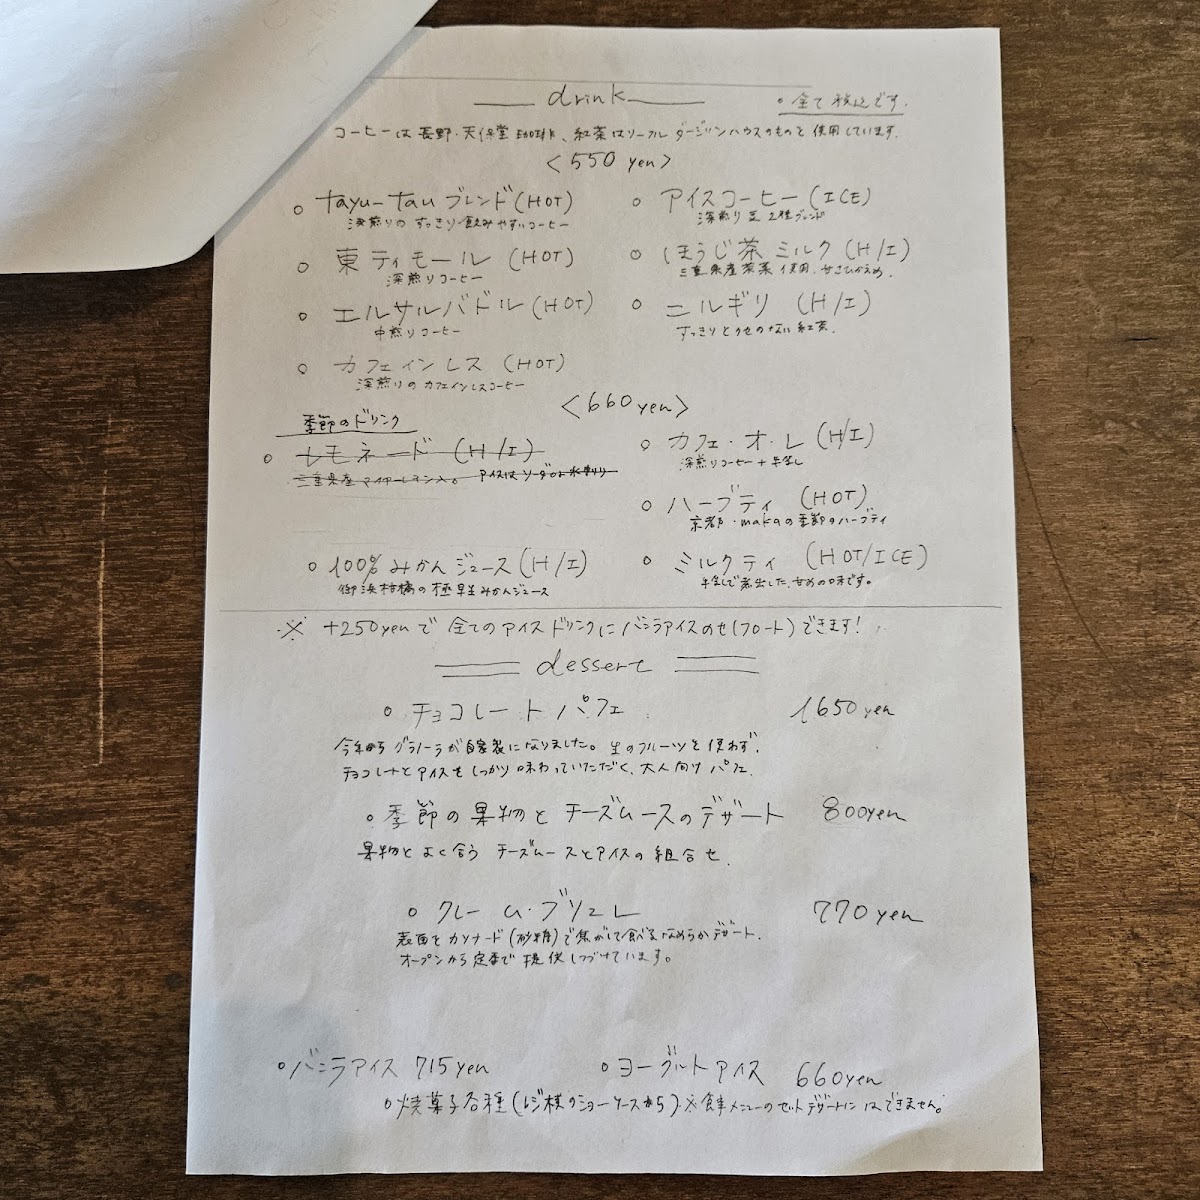 drink
。全て税込です.
コーヒーは長野・天保堂珈琲、紅茶はリーフルダージリンハウスのものを使用しています.
<550 yen>
○ tayu-tau ブレンド(HOT)
深煎りの すっきり飲みやすいコーヒー
○ 東ティモール (HOT)
深煎りコーヒー
○ エルサルバドル(HOT)
中煎りコーヒー
○ カフェインレス (HOT)
深煎りのカフェインレスコーヒー
○ アイスコーヒー(ICE)
深煎り豆 2種ブレンド
○ ほうじ茶ミルク(H/I)
三重県産茶葉使用.甘さひかえめ.
○ ニルギリ (H/I)
すっきりとクセのない紅茶.
<660yen>
季節のドリンク
○ レモネード (H/I)
三重県産マイヤーレモン入。 アイスはソーダor水割り
○ 100% みかんジュース(H/I)
御浜柑橘の極早生みかんジュース
○ カフェ・オ・レ (H/I)
深煎りコーヒー+牛乳
○ ハーブティ (HOT)
京都・makaの季節のハーブティ
○ ミルクティ (HOT/ICE)
牛乳で煮出した、甘めの味です。
※ +250yenで 全てのアイスドリンクにバニラアイスのせ(フロート)できます!
dessert
○ チョコレートパフェ 1650yen
今年から グラノーラが自家製になりました。生のフルーツを使わず.
チョコレートとアイスをしっかり味わっていただく、大人向けパフェ.
○ 季節の果物とチーズムースのデザート 800yen
果物とよく合う チーズムースとアイスの組合せ.
○ クレーム・ブリュレ 770yen
表面をカソナード(砂糖)で焦がして食べるなめらかデザート.
オープンから定番で提供しつづけています。
○バニラアイス 715yen
○ヨーグルトアイス 660yen
○焼菓子各種(レジ横のショーケースから)※食事メニューのセットデザートにはできません。